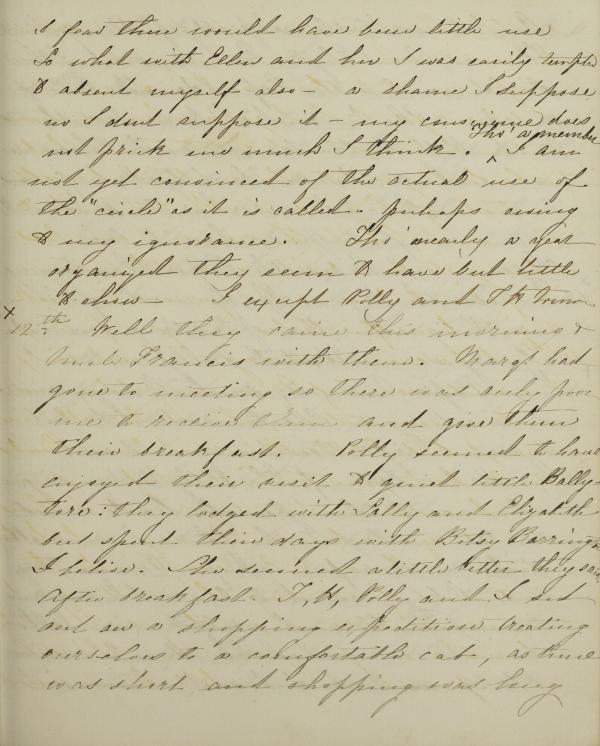 I fear there would have been little use
So what with Ellen and her I was easily tempted
to absent myself also – a shame I suppose
no I dont suppose it – my conscience does
not prick me much I think. ^Tho' a member I am
not yet convinced of the actual use of
the "circle" as it is called – perhaps owing
to my ignorance. Tho' nearly a year
organized they seem to have but little
to show – I expect Polly and T H
x 12th Well they came this morning &
Uncle Francis with them. Margt had
gone to meeting so there was only poor
me to receive them and give them
their breakfast. Polly seemed to have
enjoyed their visit to quiet little Bally-
tore: they lodged with Sally and Elizabeth
but spent their days with Betsy Barrington
I belive. She seemed a little better they said
After breakfast T, H, Polly and I set
out on a shopping expedition treating
ourselves to a comfortable cab, as time
was short and shopping was long